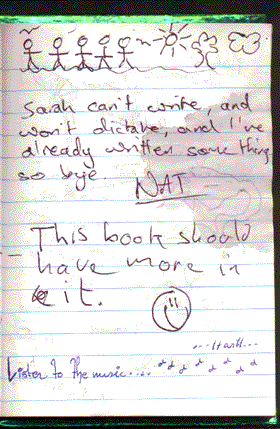 Sarah can't write, and
won't dictate, and I've
already written some thing
so bye.
NAT
This book should
have more in
it.
...It will...
Listen to the music....